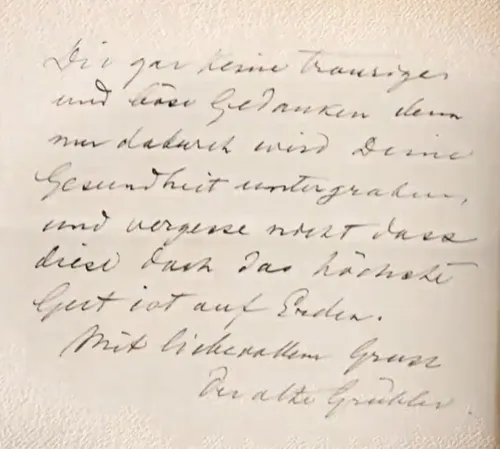 Dir gar keine traurigen
und böse Gedanken denn
nur dadurch wird Deine
Gesundheit untergraben,
und vergesse nicht dass
diese doch das höchste
Gut ist auf Erden.
Mit liebevollem Gruss
Der alte Grübler.